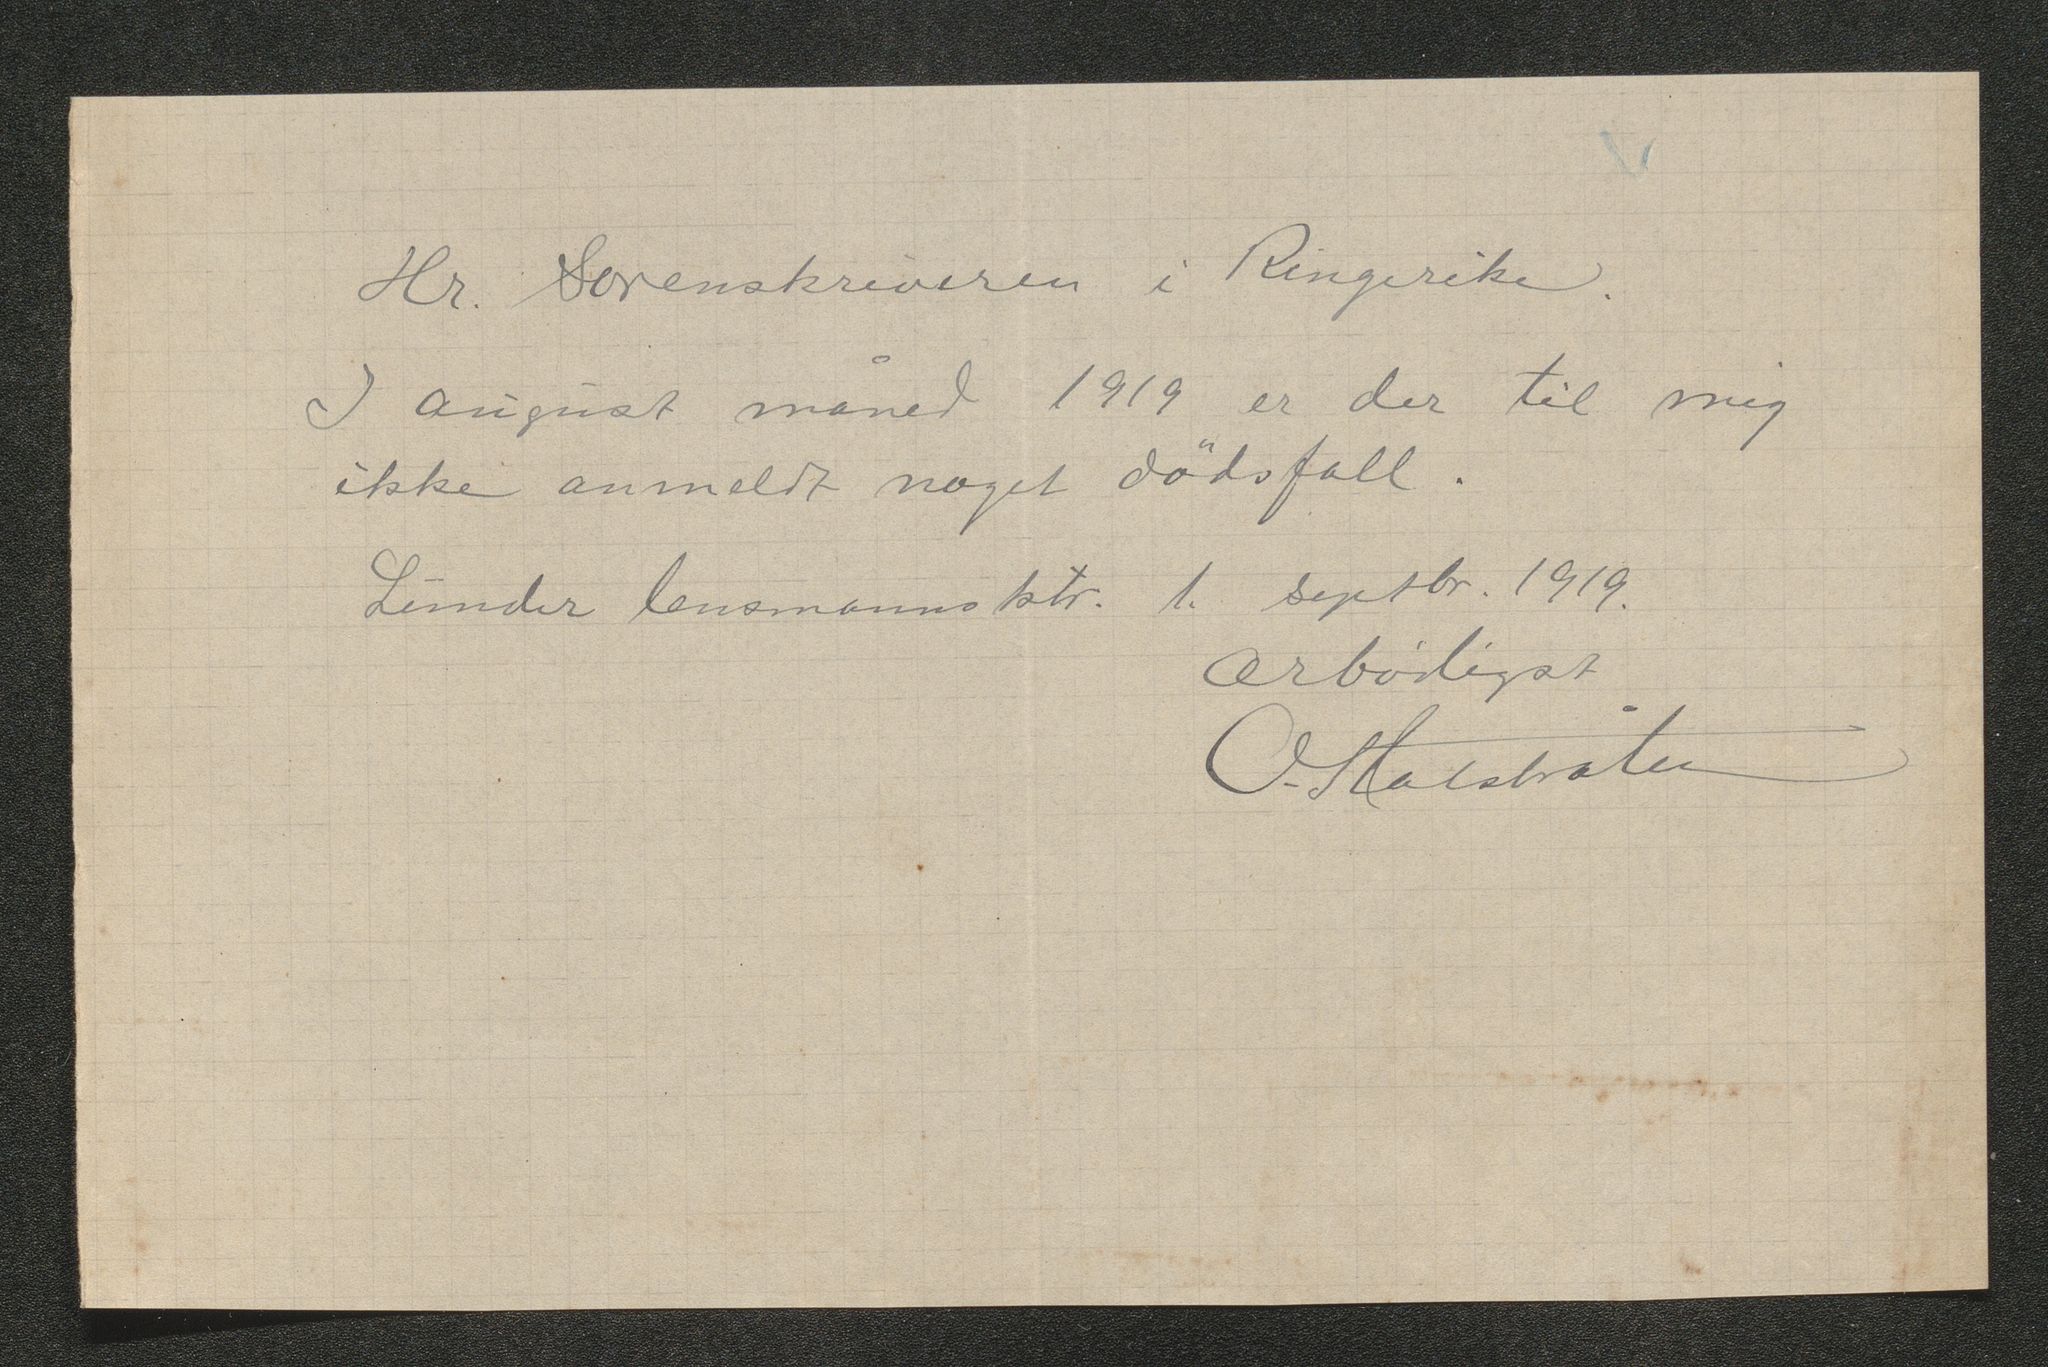 Hr. Sorenskriveren i Ringerike.
I august måned 1919 er der til mig
ikke anmeldt noget dödsfall.
Lunder lensmannsktr. 1. septbr. 1919.
ærbödigst
O. Halsbråten